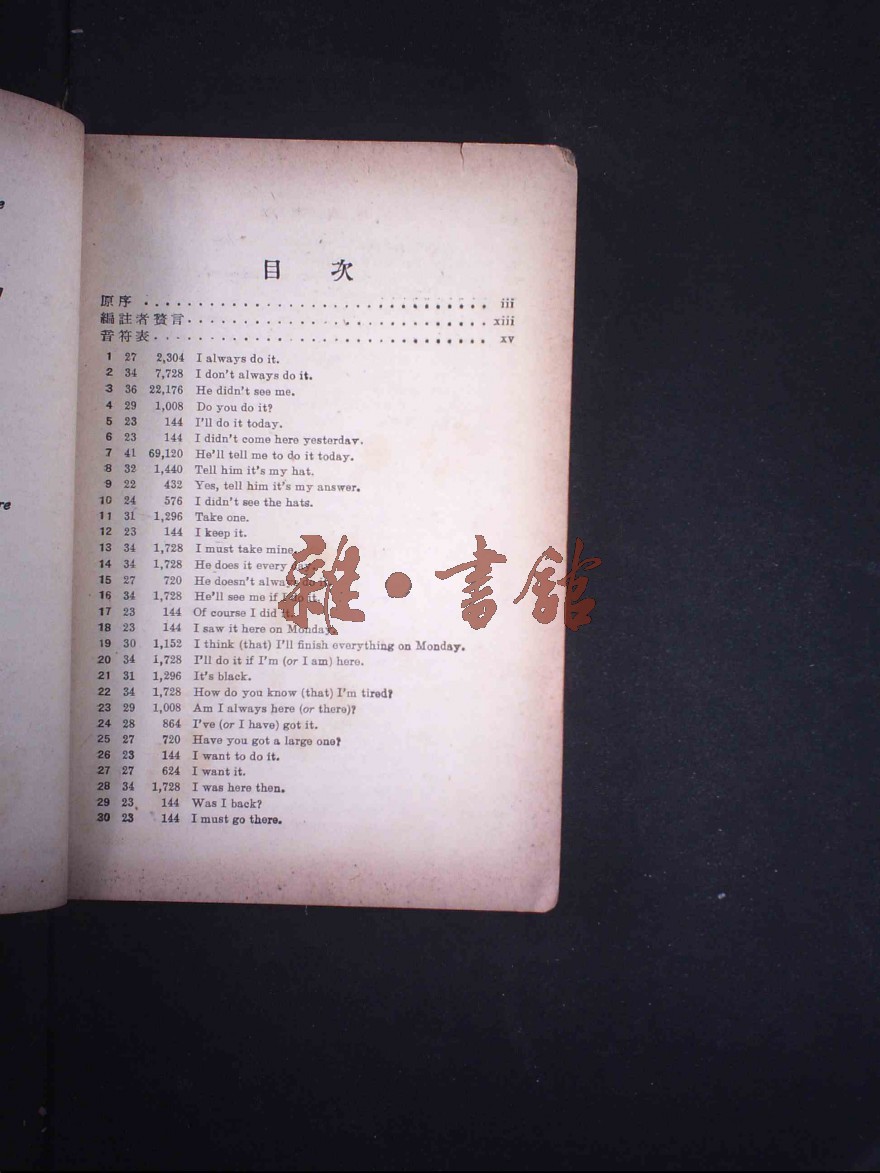 目 次
原序 . . . . . . . . . . . . . . . . . . . . . . . . . . . . . . . iii
編註者贅言. . . . . . . . . . . . . . . . . . . . . . . . . . . xiii
音符表. . . . . . . . . . . . . . . . . . . . . . . . . . . . . . xv
1 27 2,304 I always do it.
2 34 7,728 I don't always do it.
3 36 22,176 He didn't see me.
4 29 1,008 Do you do it?
5 23 144 I'll do it today.
6 23 144 I didn't come here yesterday.
7 41 69,120 He'll tell me to do it today.
8 32 1,440 Tell him it's my hat.
9 22 432 Yes, tell him it's my answer.
10 24 576 I didn't see the hats.
11 31 1,296 Take one.
12 23 144 I keep it.
13 34 1,728 I must take mine.
14 34 1,728 He does it every day.
15 27 720 He doesn't always do it.
16 34 1,728 He'll see me if I do it.
17 23 144 Of course I did it.
18 23 144 I saw it here on Monday.
19 30 1,152 I think (that) I'll finish everything on Monday.
20 34 1,728 I'll do it if I'm (or I am) here.
21 31 1,296 It's black.
22 34 1,728 How do you know (that) I'm tired?
23 29 1,008 Am I always here (or there)?
24 28 864 I've (or I have) got it.
25 27 720 Have you got a large one?
26 23 144 I want to do it.
27 27 624 I want it.
28 34 1,728 I was here then.
29 23 144 Was I back?
30 23 144 I must go there.
雜·書館